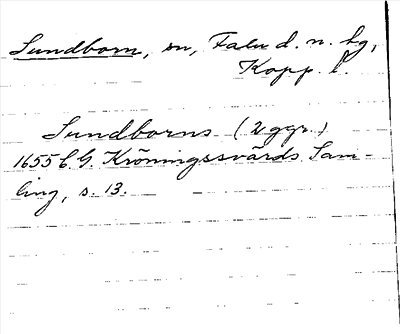 Sundborn, sn, Falu d. n. hg,
Kopp. l.
Sundborns (2 ggr.)
1655 C. G. Kröningssvärds Sam-
ling, s. 13.